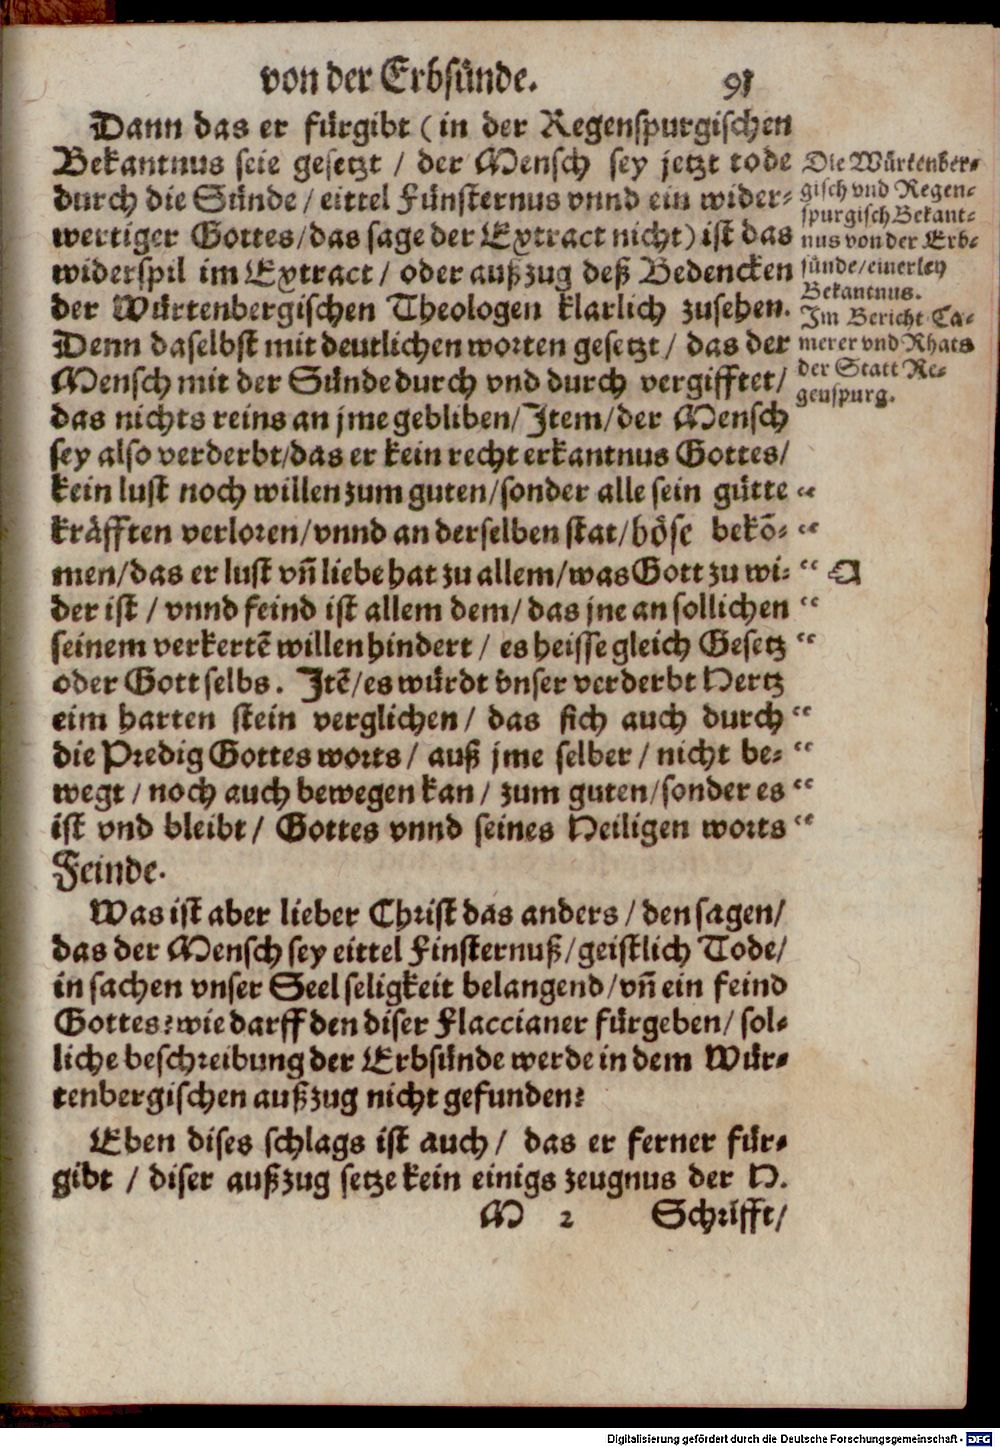 von der Erbsünde. 91
Dann das er fürgibt (in der Regenspurgischen
Bekantnus seie gesetzt / der Mensch sey jetzt tode
durch die Sünde / eittel Fünsternus vnnd ein wider-
wertiger Gottes/das sage der Extract nicht) ist das
widerspil im Extract / oder außzug deß Bedencken
der Würtenbergischen Theologen klarlich zusehen.
Denn daselbst mit deutlichen worten gesetzt / das der
Mensch mit der Sünde durch vnd durch vergifftet/
das nichts reins an jme gebliben/Item/der Mensch
sey also verderbt/das er kein recht erkantnus Gottes/
kein lust noch willen zum guten/sonder alle sein gütte
kräfften verloren/vnnd an derselben stat/böse bekõ-
men/das er lust vñ liebe hat zu allem/was Gott zu wi-
der ist / vnnd feind ist allem dem/ das jne an sollichen
seinem verkertẽ willen hindert / es heisse gleich Gesetz
oder Gott selbs. Itẽ/es würdt vnser verderbt Hertz
eim harten stein verglichen / das sich auch durch
die Predig Gottes worts / auß jme selber / nicht be-
wegt / noch auch bewegen kan / zum guten/sonder es
ist vnd bleibt / Gottes vnnd seines Heiligen worts
Feinde.
Was ist aber lieber Christ das anders / den sagen/
das der Mensch sey eittel Finsternuß/geistlich Tode/
in sachen vnser Seel seligkeit belangend/vñ ein feind
Gottes? wie darff den diser Flaccianer fürgeben/ sol-
liche beschreibung der Erbsünde werde in dem Wür-
tenbergischen außzug nicht gefunden?
Eben dises schlags ist auch / das er ferner für-
gibt / diser außzug setze kein einigs zeugnus der H.
M 2 Schrifft/
Die Würtenber-
gisch vnd Regen-
spurgisch Bekant-
nus von der Erb-
sünde/einerley
Bekantnus.
Im Bericht Ca-
merer vnd Rhats
der Statt Re-
genspurg.
Digitalisierung gefördert durch die Deutsche Forschungsgemeinschaft - DFG